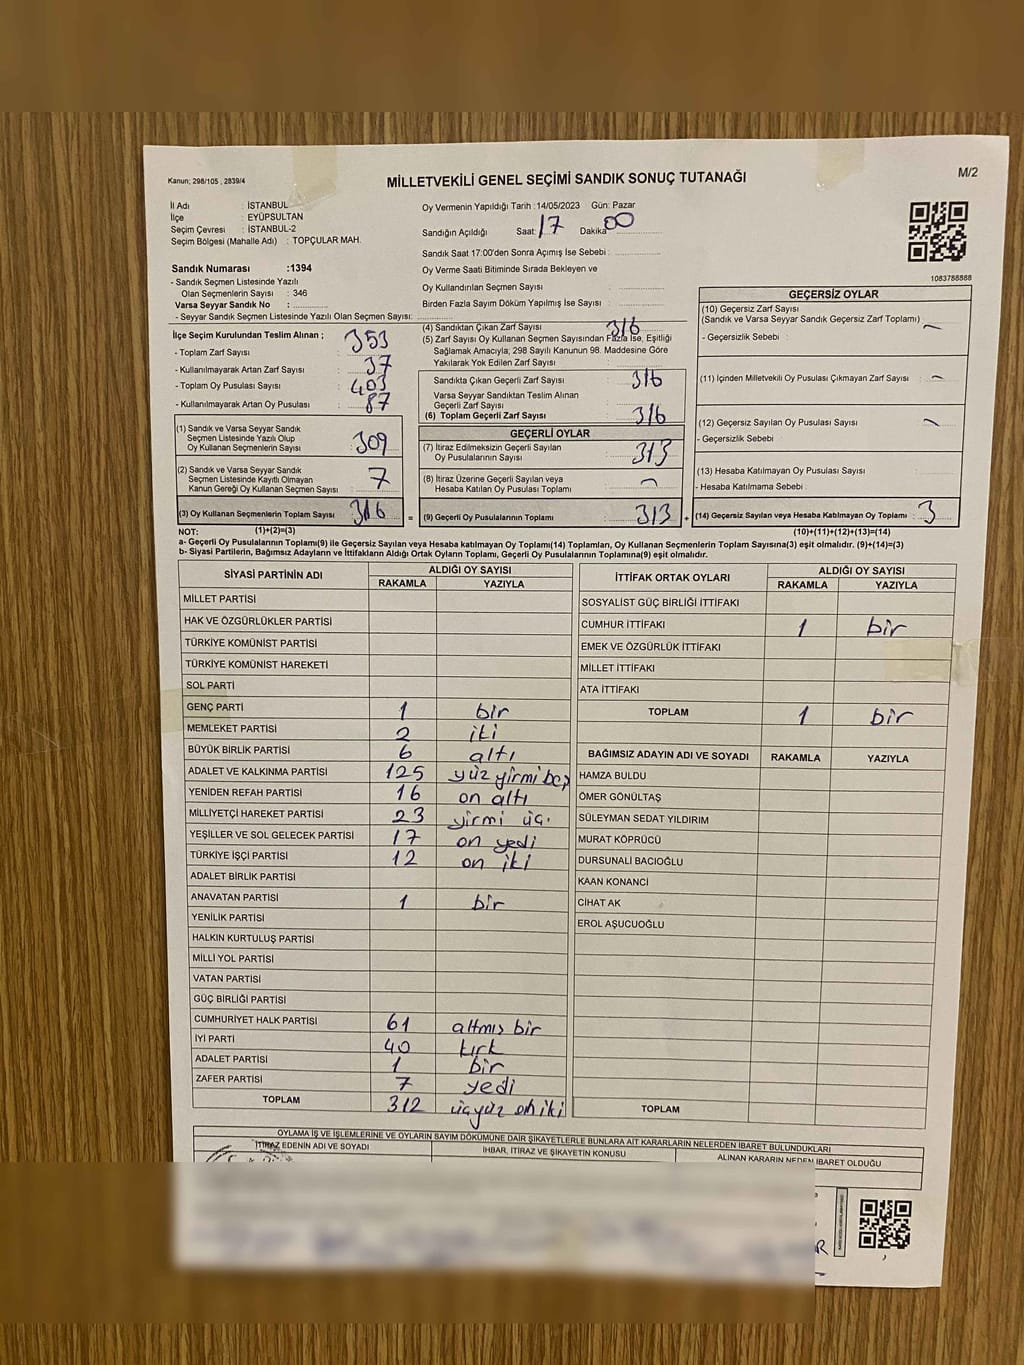 Kanun; 298/105 , 2839/4
MİLLETVEKİLİ GENEL SEÇİMİ SANDIK SONUÇ TUTANAĞI
M/2
İl Adı : İSTANBUL
İlçe : EYÜPSULTAN
Seçim Çevresi : İSTANBUL-2
Seçim Bölgesi (Mahalle Adı) : TOPÇULAR MAH.
Oy Vermenin Yapıldığı Tarih :14/05/2023 Gün: Pazar
Sandığın Açıldığı Saat: 17 Dakika 00
Sandık Saat 17:00'den Sonra Açımış İse Sebebi :
Oy Verme Saati Bitiminde Sırada Bekleyen ve
Oy Kullandırılan Seçmen Sayısı :
Birden Fazla Sayım Döküm Yapılmış İse Sayısı :
1083788888
Sandık Numarası :1394
- Sandık Seçmen Listesinde Yazılı
Olan Seçmenlerin Sayısı : 346
Varsa Seyyar Sandık No :
- Seyyar Sandık Seçmen Listesinde Yazılı Olan Seçmen Sayısı:
İlçe Seçim Kurulundan Teslim Alınan ;
- Toplam Zarf Sayısı : 353
- Kullanılmayarak Artan Zarf Sayısı : 37
- Toplam Oy Pusulası Sayısı : 403
- Kullanılmayarak Artan Oy Pusulası : 87
(1) Sandık ve Varsa Seyyar Sandık
Seçmen Listesinde Yazılı Olup
Oy Kullanan Seçmenlerin Sayısı : 309
(2) Sandık ve Varsa Seyyar Sandık
Seçmen Listesinde Kayıtlı Olmayan
Kanun Gereği Oy Kullanan Seçmen Sayısı : 7
(3) Oy Kullanan Seçmenlerin Toplam Sayısı : 316
(4) Sandıktan Çıkan Zarf Sayısı : 316
(5) Zarf Sayısı Oy Kullanan Seçmen Sayısından Fazla İse, Eşitliği
Sağlamak Amacıyla; 298 Sayılı Kanunun 98. Maddesine Göre
Yakılarak Yok Edilen Zarf Sayısı :
Sandıkta Çıkan Geçerli Zarf Sayısı : 316
Varsa Seyyar Sandıktan Teslim Alınan
Geçerli Zarf Sayısı :
(6) Toplam Geçerli Zarf Sayısı : 316
GEÇERLİ OYLAR
(7) İtiraz Edilmeksizin Geçerli Sayılan
Oy Pusulalarının Sayısı : 313
(8) İtiraz Üzerine Geçerli Sayılan veya
Hesaba Katılan Oy Pusulası Toplamı : -
= (9) Geçerli Oy Pusulalarının Toplamı : 313
GEÇERSİZ OYLAR
(10) Geçersiz Zarf Sayısı
(Sandık ve Varsa Seyyar Sandık Geçersiz Zarf Toplamı) : -
- Geçersizlik Sebebi :
(11) İçinden Milletvekili Oy Pusulası Çıkmayan Zarf Sayısı : -
(12) Geçersiz Sayılan Oy Pusulası Sayısı : -
- Geçersizlik Sebebi
(13) Hesaba Katılmayan Oy Pusulası Sayısı :
- Hesaba Katılmama Sebebi :
+ (14) Geçersiz Sayılan veya Hesaba Katılmayan Oy Toplamı : 3
NOT: (1)+(2)=(3) (10)+(11)+(12)+(13)=(14)
a- Geçerli Oy Pusulalarının Toplamı(9) ile Geçersiz Sayılan veya Hesaba Katılmayan Oy Toplamı(14) Toplamları, Oy Kullanan Seçmenlerin Toplam Sayısına(3) eşit olmalıdır. (9)+(14)=(3)
b- Siyasi Partilerin, Bağımsız Adayların ve İttifakların Aldığı Ortak Oyların Toplamı, Geçerli Oy Pusulalarının Toplamına(9) eşit olmalıdır.
SİYASİ PARTİNİN ADI ALDIĞI OY SAYISI
RAKAMLA YAZIYLA
MİLLET PARTİSİ
HAK VE ÖZGÜRLÜKLER PARTİSİ
TÜRKİYE KOMÜNİST PARTİSİ
TÜRKİYE KOMÜNİST HAREKETİ
SOL PARTİ
GENÇ PARTİ 1 bir
MEMLEKET PARTİSİ 2 iki
BÜYÜK BİRLİK PARTİSİ 6 altı
ADALET VE KALKINMA PARTİSİ 125 yüz yirmi beş
YENİDEN REFAH PARTİSİ 16 on altı
MİLLİYETÇİ HAREKET PARTİSİ 23 yirmi üç.
YEŞİLLER VE SOL GELECEK PARTİSİ 17 on yedi
TÜRKİYE İŞÇİ PARTİSİ 12 on iki
ADALET BİRLİK PARTİSİ
ANAVATAN PARTİSİ 1 bir
YENİLİK PARTİSİ
HALKIN KURTULUŞ PARTİSİ
MİLLİ YOL PARTİSİ
VATAN PARTİSİ
GÜÇ BİRLİĞİ PARTİSİ
CUMHURİYET HALK PARTİSİ 61 altmış bir
İYİ PARTİ 40 kırk
ADALET PARTİSİ 1 bir
ZAFER PARTİSİ 7 yedi
TOPLAM 312 üçyüz oniki
İTTİFAK ORTAK OYLARI ALDIĞI OY SAYISI
RAKAMLA YAZIYLA
SOSYALİST GÜÇ BİRLİĞİ İTTİFAKI
CUMHUR İTTİFAKI 1 bir
EMEK VE ÖZGÜRLÜK İTTİFAKI
MİLLET İTTİFAKI
ATA İTTİFAKI
TOPLAM 1 bir
BAĞIMSIZ ADAYIN ADI VE SOYADI RAKAMLA YAZIYLA
HAMZA BULDU
ÖMER GÖNÜLTAŞ
SÜLEYMAN SEDAT YILDIRIM
MURAT KÖPRÜCÜ
DURSUNALİ BACIOĞLU
KAAN KONANCİ
CİHAT AK
EROL AŞUCUOĞLU
TOPLAM
OYLAMA İŞ VE İŞLEMLERİNE VE OYLARIN SAYIM DÖKÜMÜNE DAİR ŞİKAYETLERLE BUNLARA AİT KARARLARIN NELERDEN İBARET BULUNDUKLARI
İTİRAZ EDENİN ADI VE SOYADI İHBAR, İTİRAZ VE ŞİKAYETİN KONUSU ALINAN KARARIN NEDEN İBARET OLDUĞU